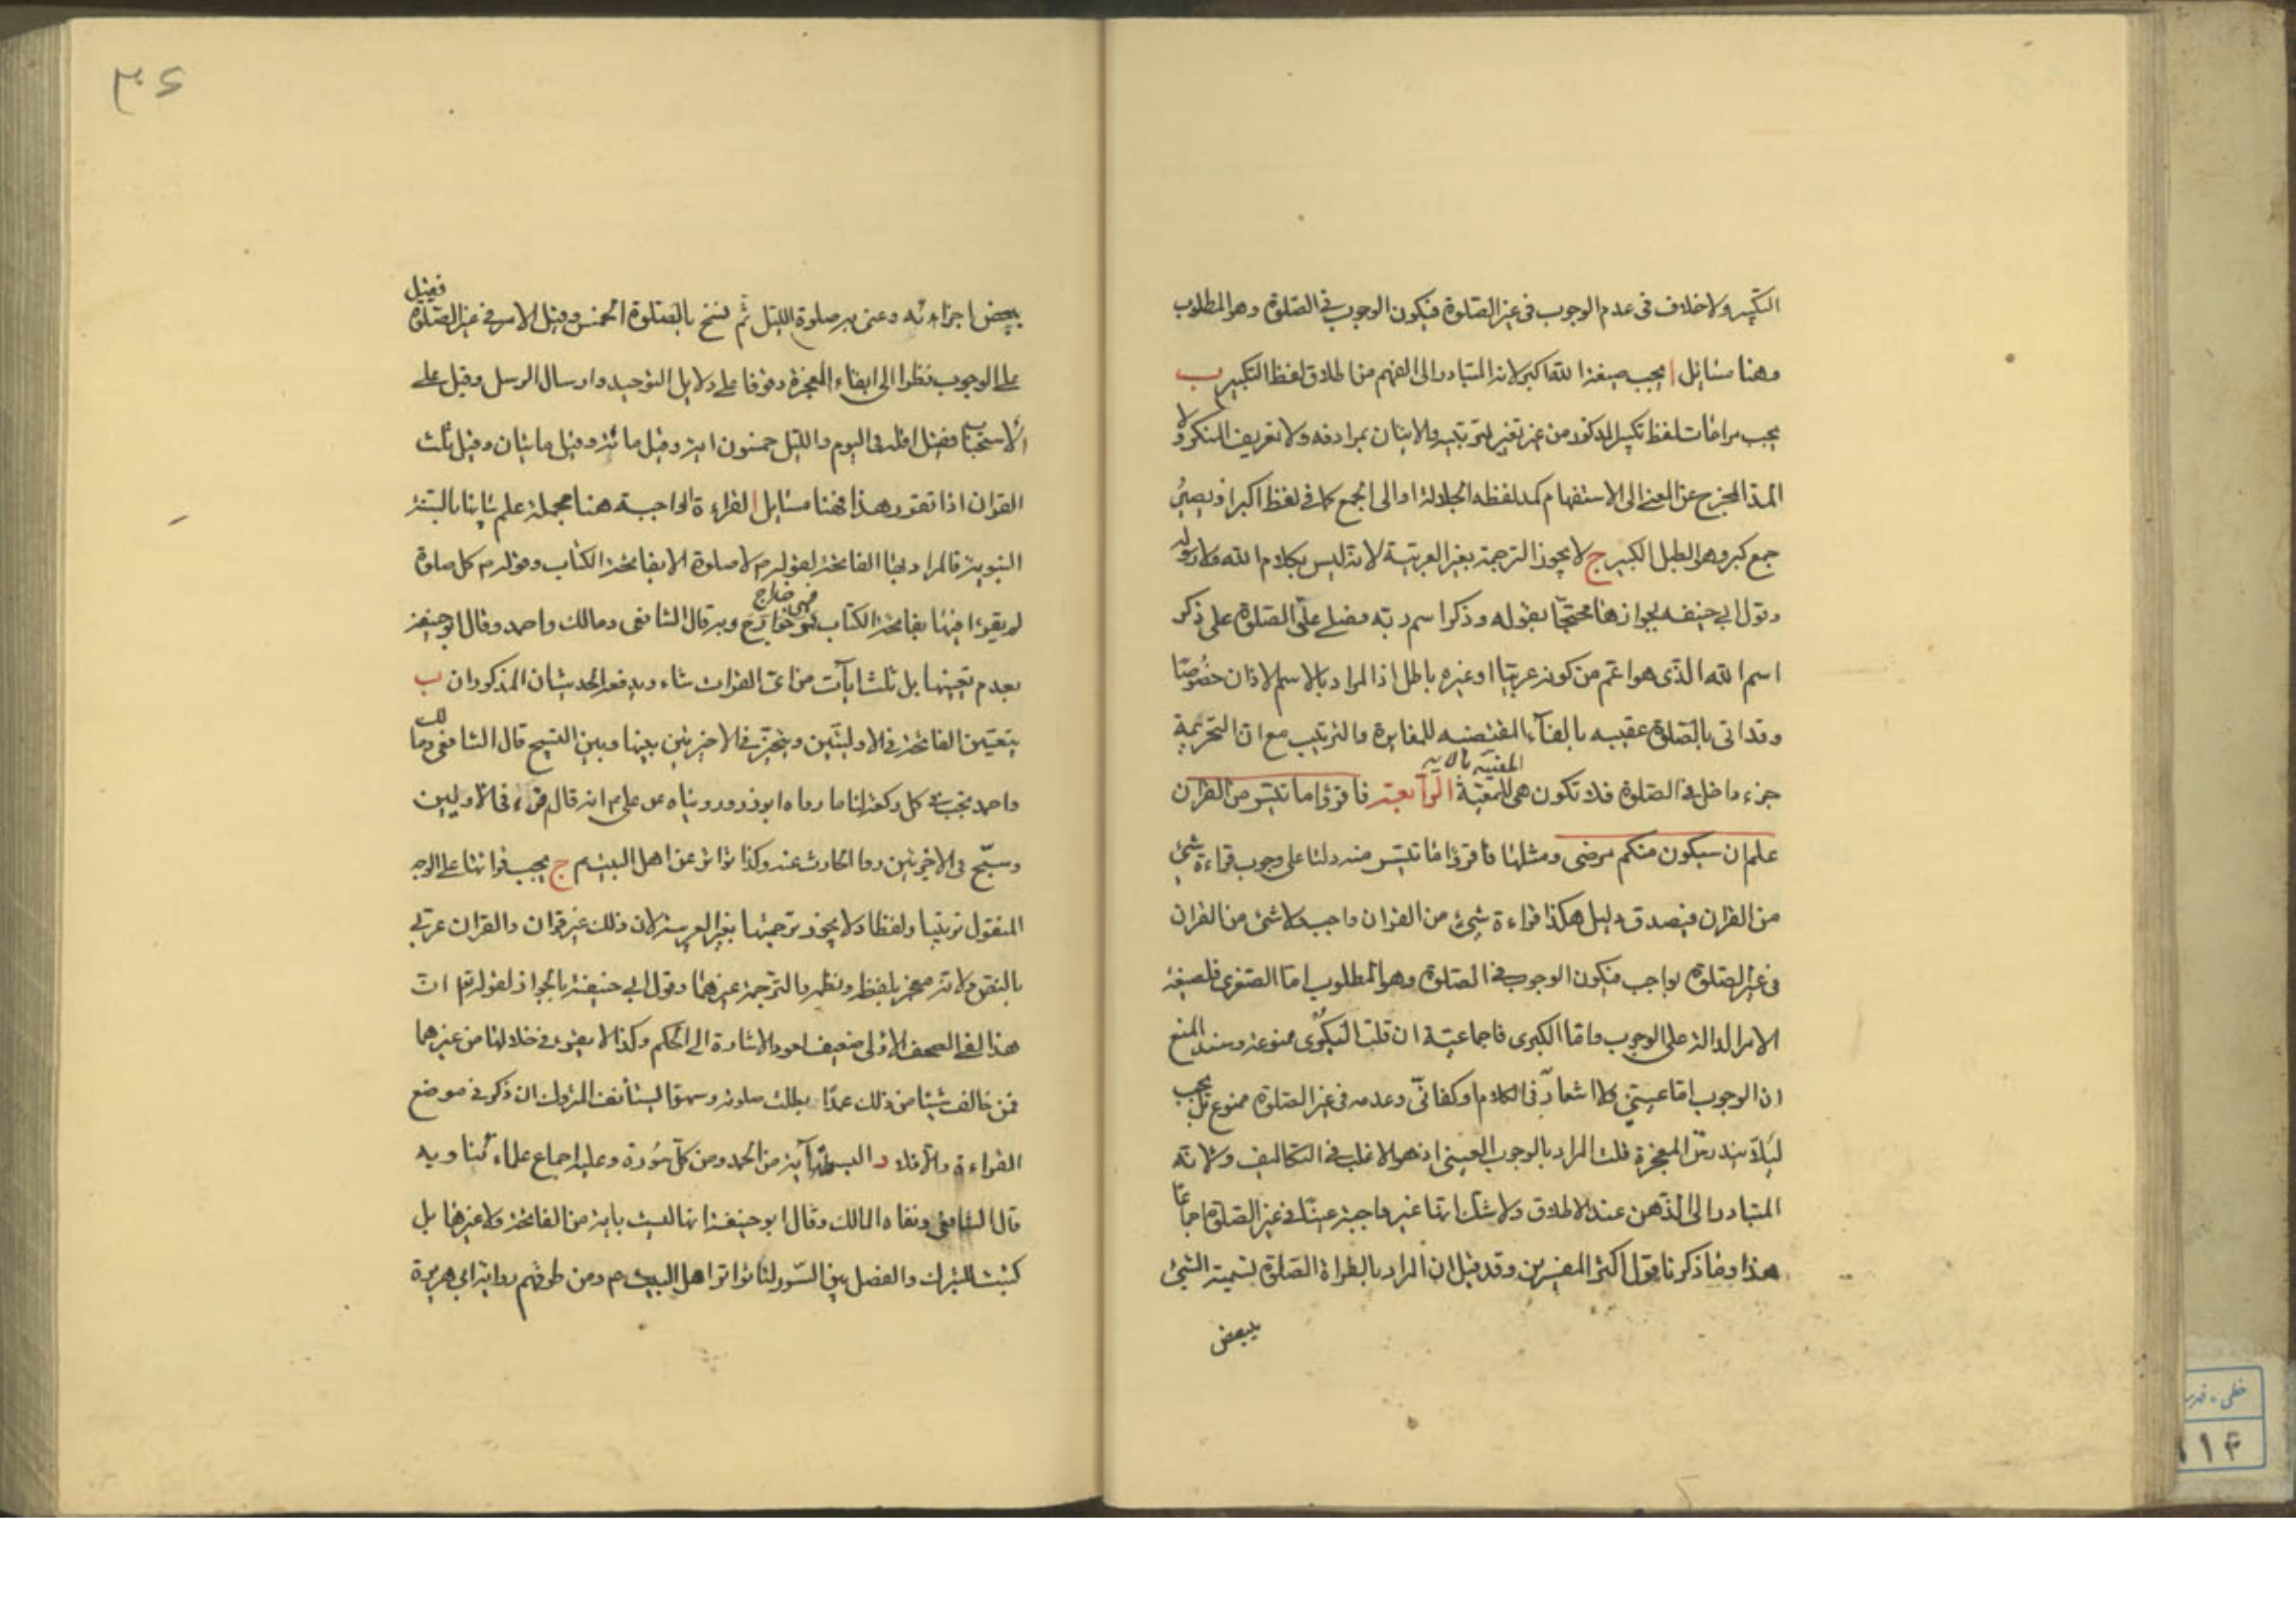 التكبير ولا خلاف فى عدم الوجوب فى غير الصلوة فيكون الوجوب فى الصلوة وهو المطلوب
وهنا مسائل ا يجب صيغة الله اكبر لانه المتبادر الى الفهم من اطلاق لفظ التكبير ب
يجب مراعات لفظ تكبير المذكور من غير تغير لترتيبه ولا الاتيان بمرادفه ولا تعريف المنكر ولا
المد المخرج عن المعنى الى الاستفهام كمد لفظه الجلالة او الى الجمع كما فى لفظ اكبر اذ يصير
جمع كبر وهو الطبل الكبير ج لا يجوز الترجمة بغير العربية لانه ليس بكلام الله ولا رسوله
وقول ابى حنيفه بجواز هنا محتجا بقوله وذكر اسم ربه فصلى علق الصلوة على ذكر
اسم الله الذى هو اعم من كونه عربيا او غيره باطل اذ المراد بالاسم الاذان خصوصا
وقد اتى بالصلوة عقيبه بالفآء المقتضيه للمغايرة والترتيب مع ان التحريمة
جزء داخل فى الصلوة فلا تكون هى المعقبة المعنية بالاية الرابعة فاقرؤا ما تيسر من القران
علم ان سيكون منكم مرضى ومثلها فاقرؤا ما تيسر منه دلتا على وجوب قراءة شئ
من القران فيصدق دليل هكذا قراءة شئ من القران واجب ولا شئ من القران
فى غير الصلوة بواجب فيكون الوجوب فى الصلوة وهو المطلوب اما الصغرى فلصيغة
الامر الدالة على الوجوب واما الكبرى فاجماعية ان قلت الكبرى ممنوعة وسند المنع
ان الوجوب اما عينى ولا اشعار فى الكلام او كفائى وعدمه فى غير الصلوة ممنوع بل يجب
ليلا يندرس المعجزة قلت المراد بالوجوب العينى اذ هو الاغلب فى التكاليف ولانه
المتبادر الى الذهن عند الاطلاق ولا شك انها غير واجبة عينا فى غير الصلوة اجماعا
هذا وما ذكرنا قول اكثر المفسرين وقد قيل ان المراد بالقراءة الصلوة تسمية الشئ
ببعض
۳۶
ببعض اجزاءه وعنى به صلوة الليل ثم نسخ بالصلوة الخمس وقيل الامر فى غير الصلوة فقيل
على الوجوب نظرا الى ابقاء المعجزة وقوفا على دلايل التوحيد وارسال الرسل وقيل على
الاستحباب فقيل اقله فى اليوم والليل خمسون اية وقيل مائة وقيل مائتان وقيل ثلث
القران اذا تقرر هذا فهنا مسائل ا القراءة الواجبة هنا مجملة علم بيانها بالسنة
النبوية فالمراد بها الفاتحة لقوله م لا صلوة الا بفاتحة الكتاب وقوله م كل صلوة
لم يقرء فيها بفاتحة الكتاب فهى خداج وبه قال الشافعى ومالك واحمد وقال ابو حنيفة
بعدم تعينها بل ثلث ايآت من اى القران شاء ويدفعه الحديثان المذكوران ب
يتعين الفاتحة فى الاوليين ويتخير فى الاخيرتين بينها وبين التسبيح قال الشافعى ومالك
واحمد تجب فى كل ركعة لنا ما رواه ابوذر وروينا عن على م انه قال اقرء فى الاوليين
وسبح فى الاخيرتين رواه الحارث عنه وكذا تواتر عن اهل البيت م ج يجب قرائتها على الوجه
المنقول ترتيبا ولفظا ولا يجوز ترجمتها بغير العربية لان ذلك غير قران والقران عربى
بالنص ولانه معجز بلفظه ونظمه والترجمة غيرهما وقول ابى حنيفة بالجواز لقوله تعم ان
هذا لفى الصحف الاولى ضعيف لعود الاشارة الى الحكم وكذا لا يقرء فى خلالها من غيرهما
فمن خالف شيئا من ذلك عمدا بطلت صلوته وسهوا ليستأنف المتروك ان ذكر فى موضع
القراءة والا فلا د البسملة آية من الحمد ومن كل سورة وعليه اجماع علماءنا وبه
قال الشافعى ونفاه المالك وقال ابو حنيفة انها ليست باية من الفاتحة ولا غيرها بل
كتبت للتبرك والفصل بين السور لنا تواتر اهل البيت م ومن طرقهم رواية ابى هريرة